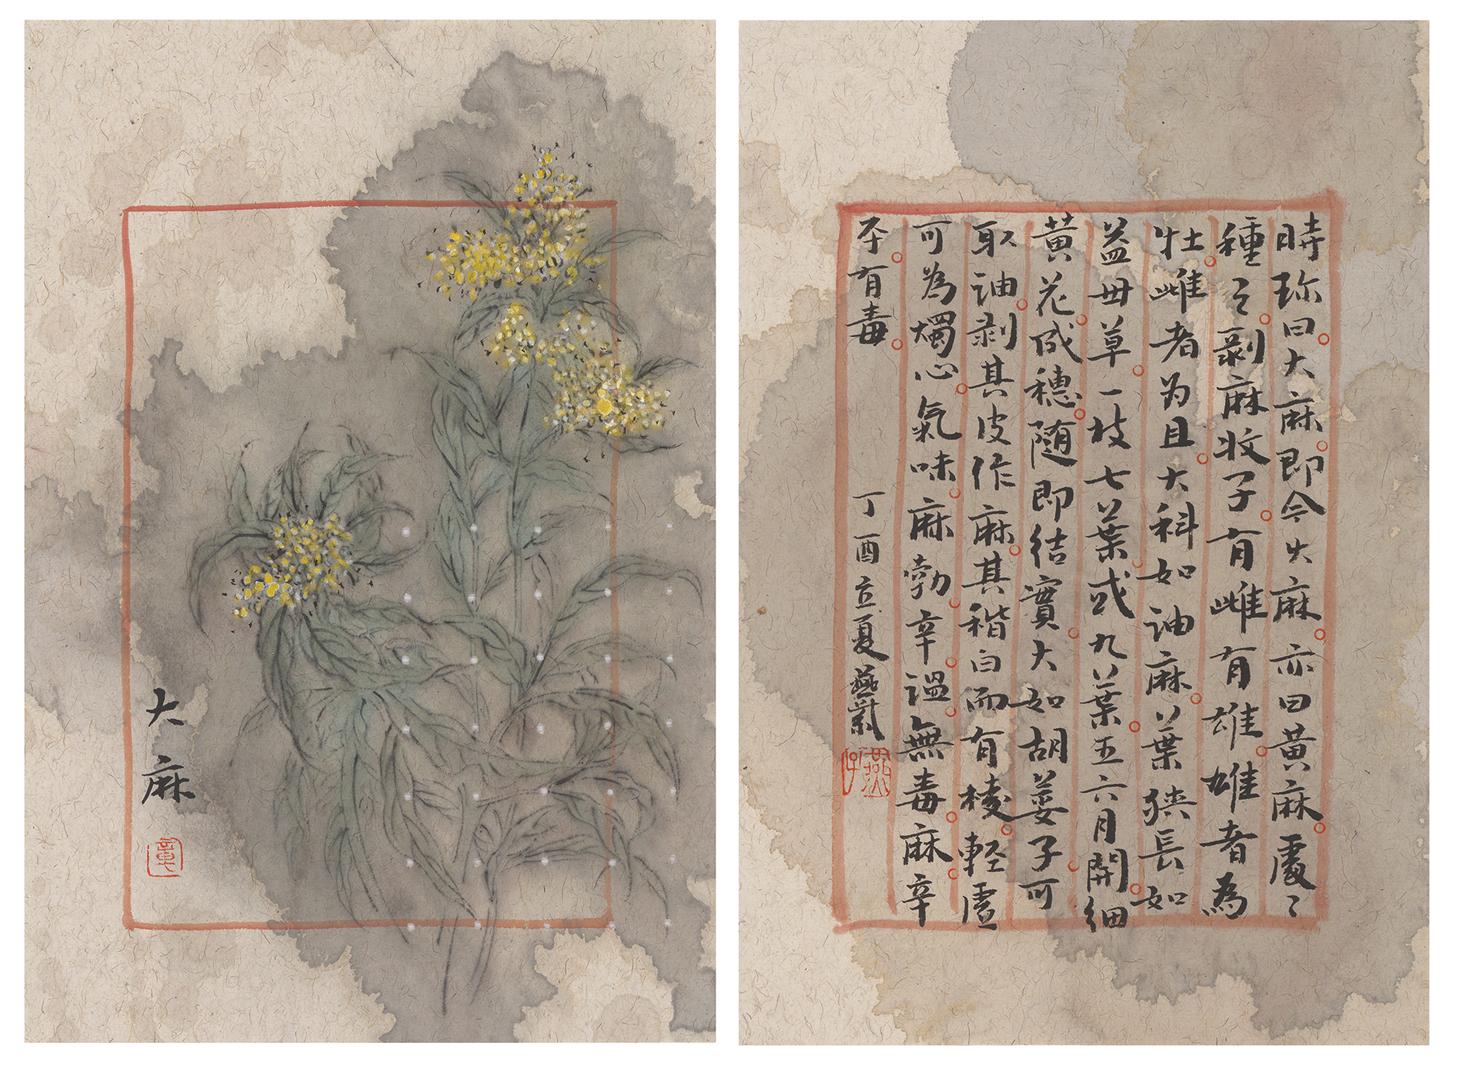 大麻
童
時珍曰大麻即今火麻亦曰黄麻處〻
種之剥麻收子有雌有雄雄者為
牡雌者为且大科如油麻葉狭長如
益母草一枝七葉或九葉五六月開細
黄花成穗随即结實大如胡荽子可
取油剥其皮作麻其稭白而有棱輕虚
可為燭心氣味麻勃辛温無毒麻辛
平有毒
丁酉立夏燕